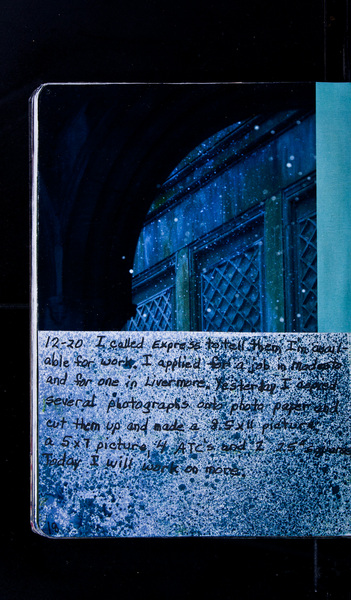 12-20 I called Express to tell them I'm avail-
able for work. I applied for a job in modesto
and for one in Livermore. Yesterday I
several photographs onto photo paper and
cut them up and made a 8.5x11 picture,
a 5x7 picture, 4 ATC's and 2 2.5" squares
Today I will work on more.